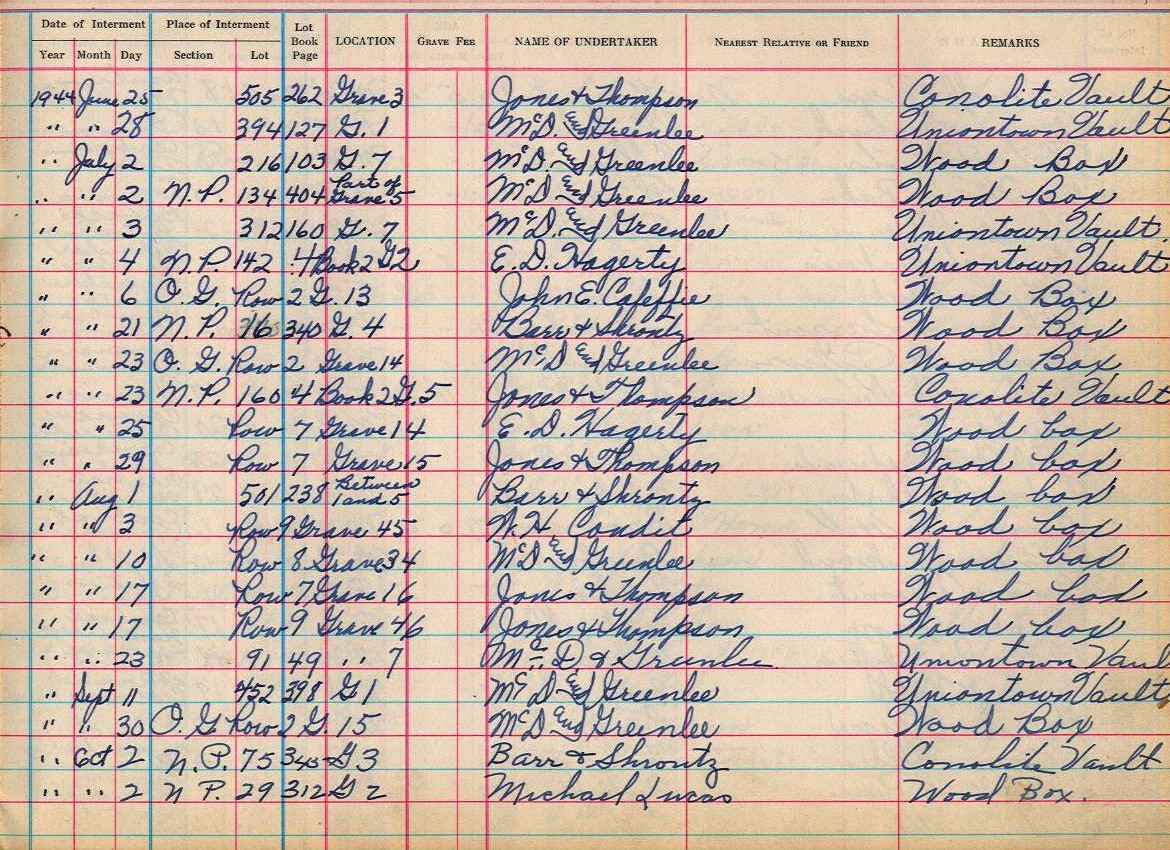 Date of Interment Place of Interment Lot Book Page LOCATION GRAVE FEE NAME OF UNDERTAKER NEAREST RELATIVE OR FRIEND REMARKS
Year Month Day Section Lot
1944 June 25 505 262 Grave 3 Jones & Thompson Conolite Vault
" " 28 394 127 G. 1 McD. and Greenlee Uniontown Vault
" July 2 216 103 G. 7 McD. and Greenlee Wood Box
" " 2 N.P. 134 404 Part of Grave 5 McD and Greenlee Wood Box
" " 3 312 160 G. 7 McD. and Greenlee Uniontown Vault
" " 4 N.P. 142 4 Book 2 G2 E. D. Hagerty Uniontown Vault
" " 6 O. G. Row 2 G. 13 John E. Wood Box
" " 21 N. P. 340 G. 4 Barr & Shrontz Wood Box
" " 23 O. G. Row 2 Grave 14 McD and Greenlee Wood Box
" " 23 N. P. 160 4 Book 2 G. 5 Jones & Thompson Conolite Vault
" " 25 Row 7 Grave 14 E. D. Hagerty Wood box
" " 29 Row 7 Grave 15 Jones & Thompson Wood box
" Aug 1 501 238 Between 1 and 5 Barr & Shrontz Wood box
" " 3 Row 9 Grave 45 W. H. Condit Wood box
" " 10 Row 8 Grave 34 McD and Greenlee Wood box
" " 17 Row 7 Grave 16 Jones & Thompson Wood box
" " 17 Row 9 Grave 46 Jones & Thompson Wood box
" " 23 91 49 " 7 Mc D & Greenlee Uniontown Vaul
" Sept 11 452 398 G 1 McD and Greenlee Uniontown Vault
" " 30 O. G Row 2 G. 15 McD and Greenlee Wood Box
" Oct 2 N. P. 75 345 G 3 Barr & Shrontz Conolite Vault
" " 2 N P. 29 312 G 2 Michael Lucas Wood Box.